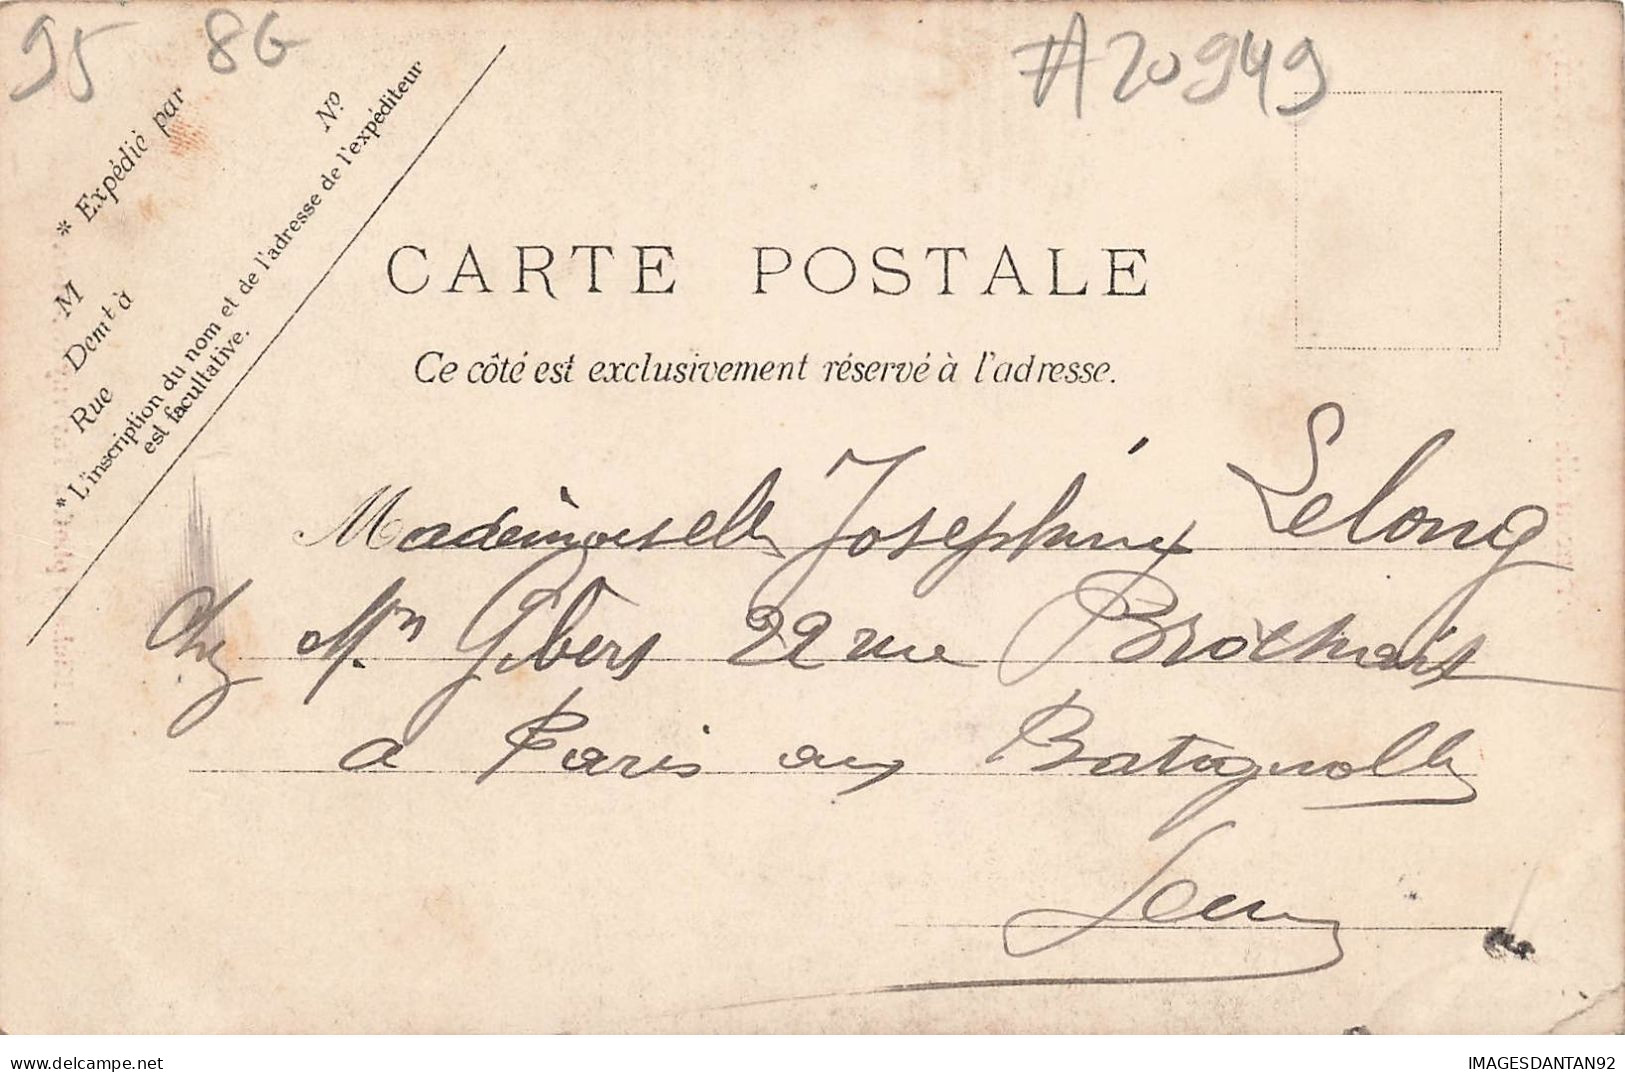 95 86
#A20949
* Expédié par
M
Nº
Demt à
Rue
* L'inscription du nom et de l'adresse de l'expéditeur
est facultative.
CARTE POSTALE
Ce côté est exclusivement réservé à l'adresse.
Mademoiselle Joséphine Lelong
Chez Mn Gibers 22 rue Brochant
a Paris aux Batignolles
delcampe.net
IMAGESDANTAN92